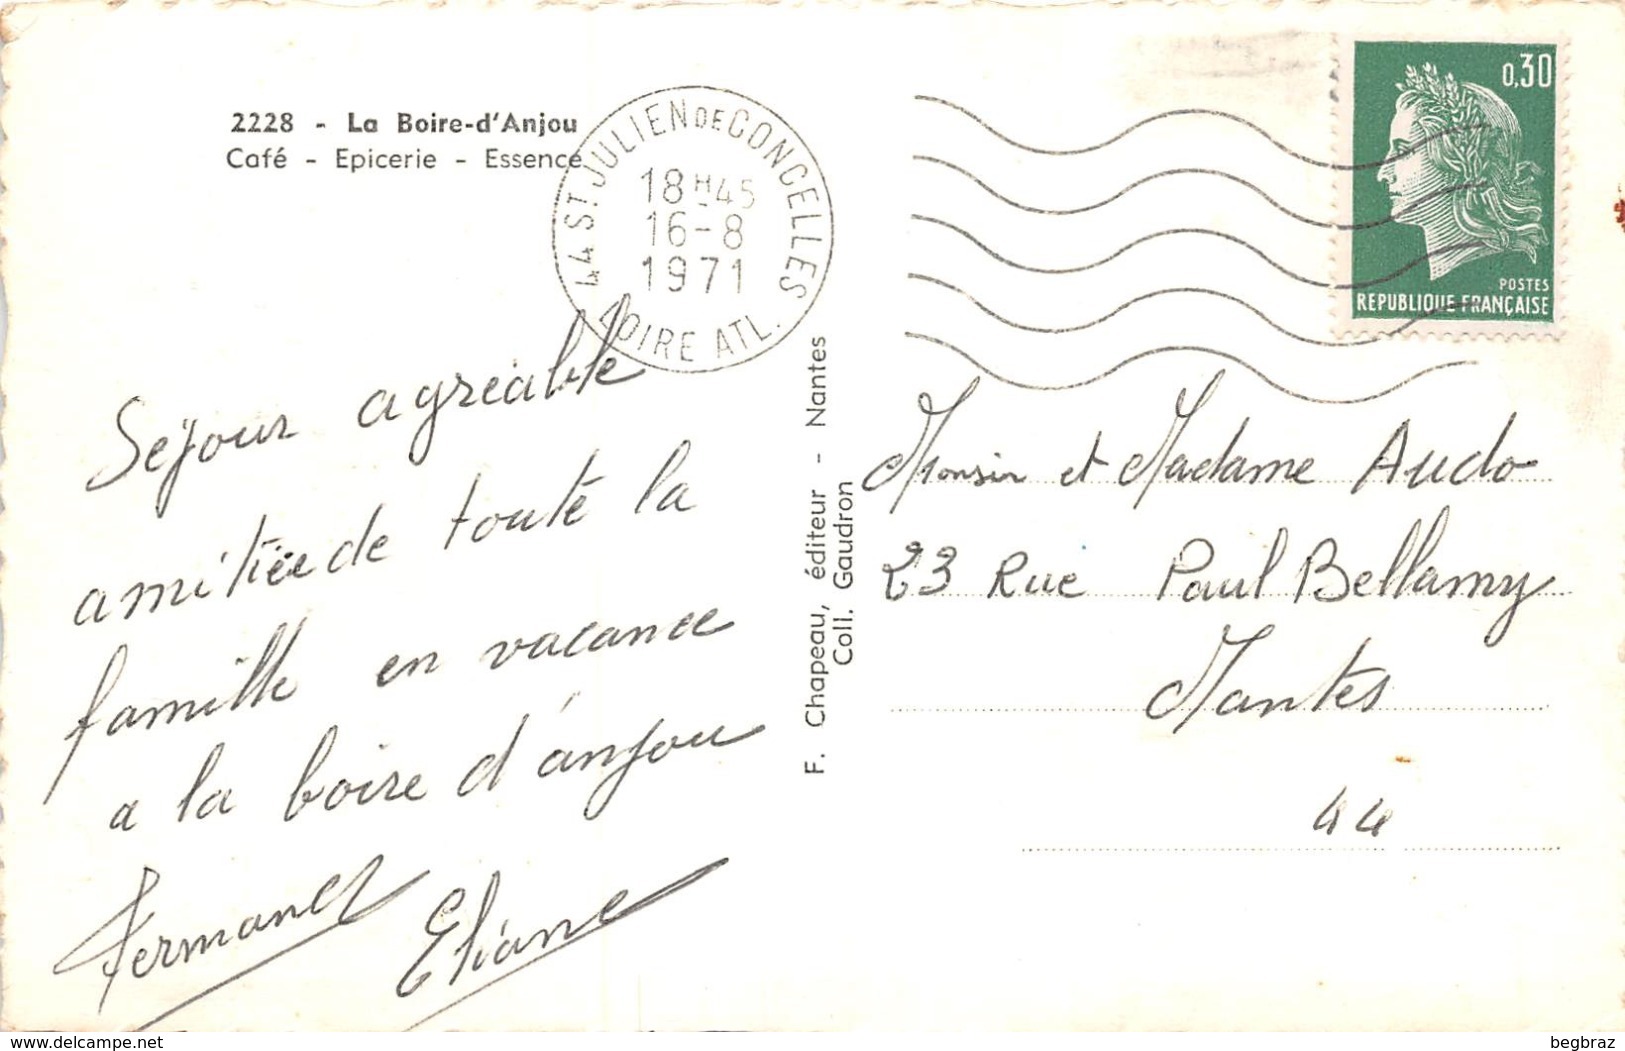 2228 - La Boire-d'Anjou
Café - Epicerie - Essence
44 ST JULIEN DE CONCELLES
18H45
16-8
1971
LOIRE ATL.
0,30
POSTES
REPUBLIQUE FRANÇAISE
Séjour agréable
amitiée de toute la
famille en vacance
a la boire d'anjou
Eliane
F. Chapeau, éditeur - Nantes
Coll. Gaudron
Monsir et Madame Audo
23 Rue Paul Bellamy
Nantes
44
delcampe.net
begbraz